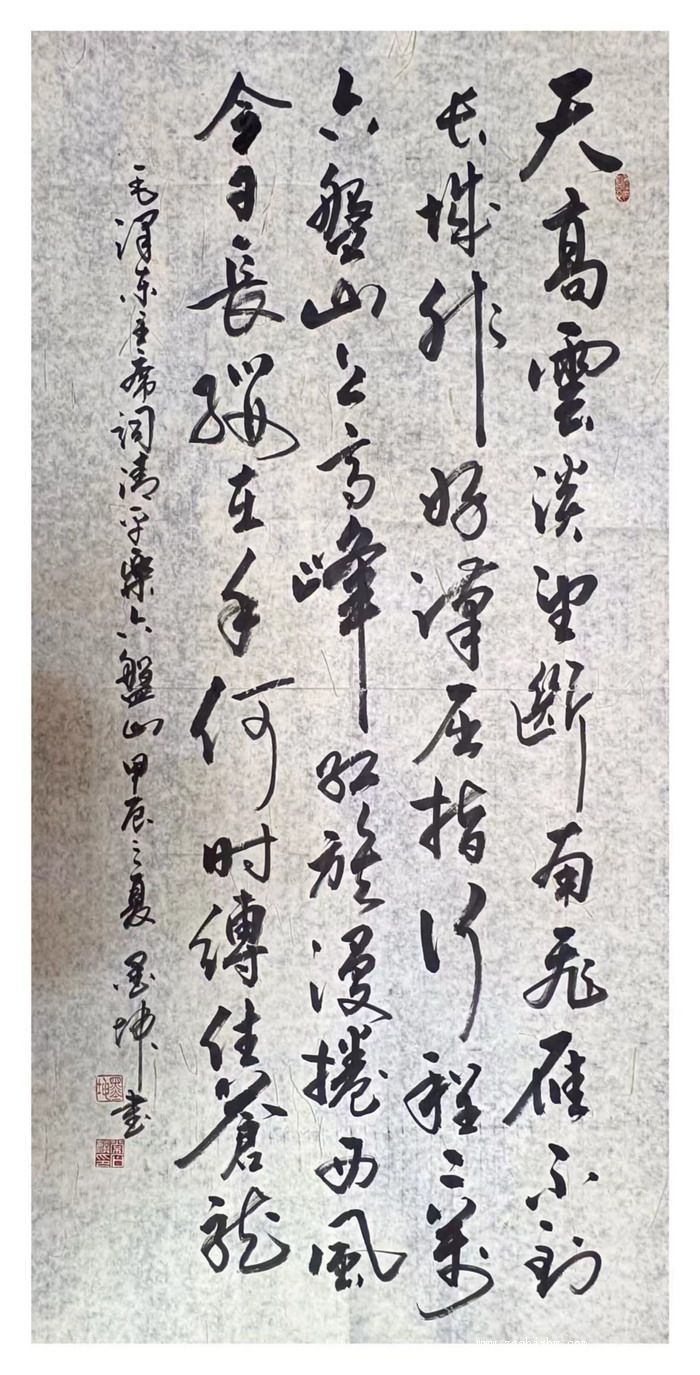 天高雲淡望斷南飛雁不到
长城外好漢屈指行程二萬
六盤山上高峰红旗漫捲西風
今日長纓在手何时縛住蒼龍
毛澤东主席词清平樂六盤山甲辰之夏 墨坤书
墨坤